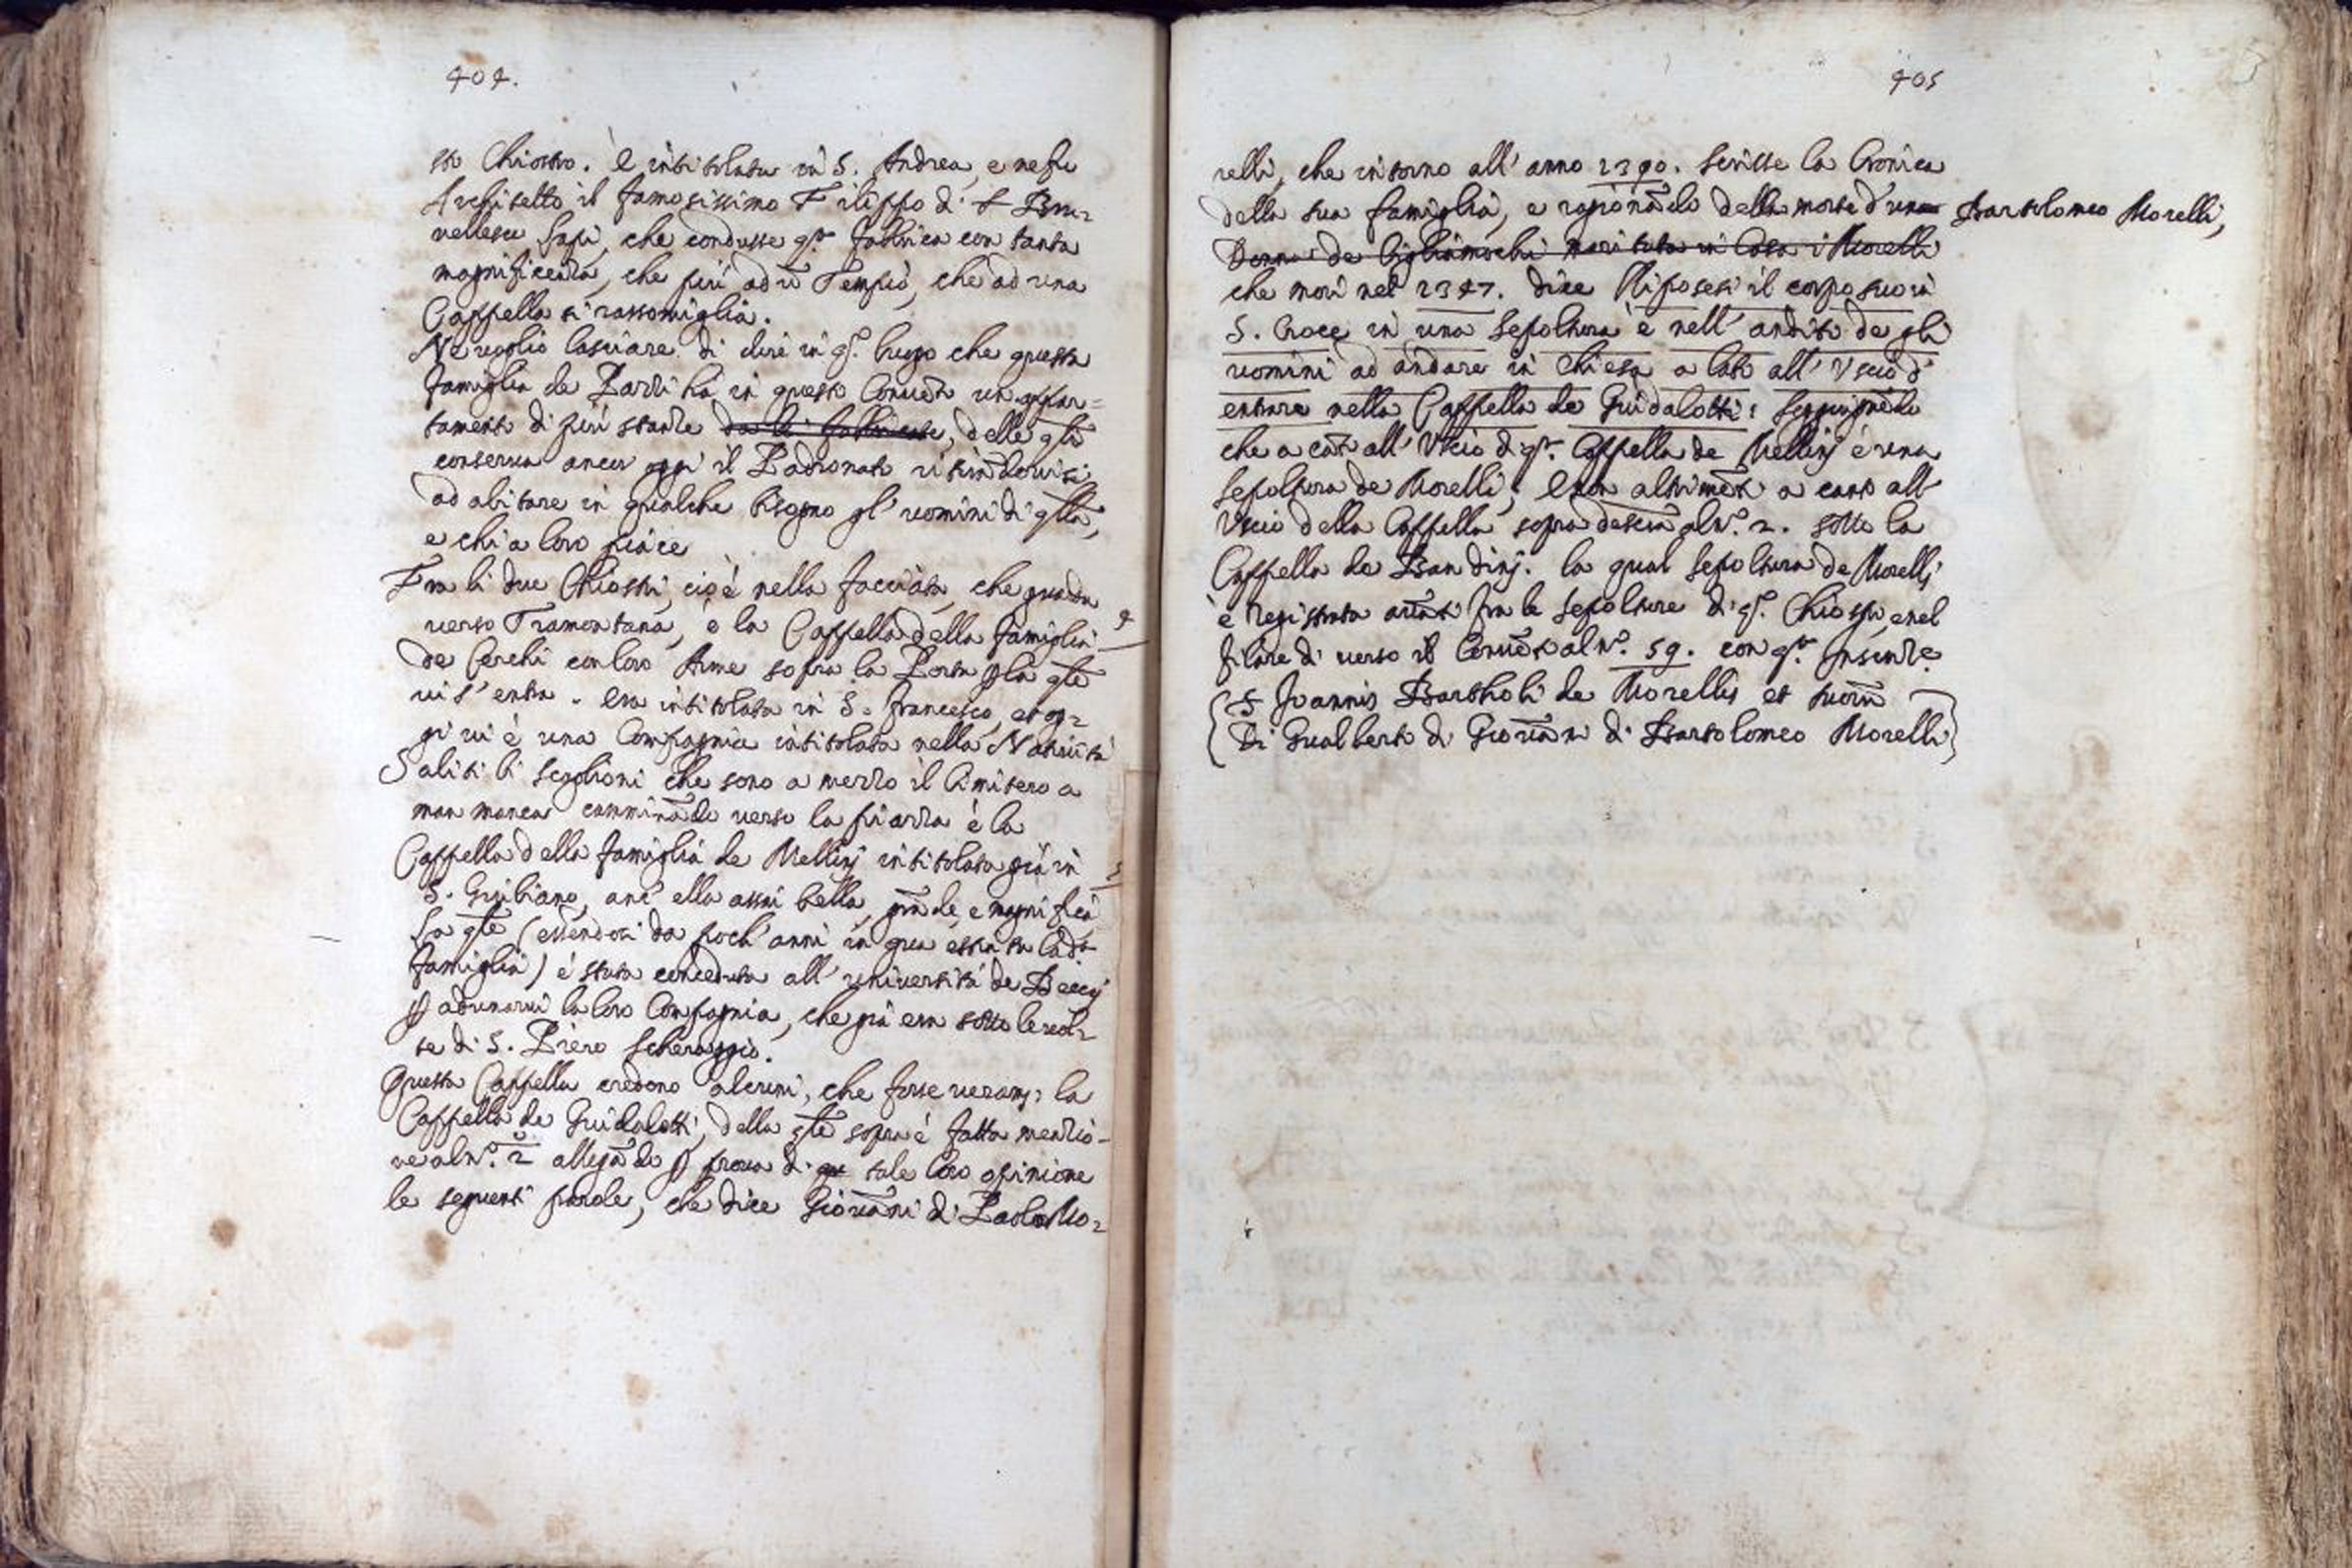 404.
sto Chiostro. È intitolata in S. Andrea, e ne fu
Architetto il famosissimo Filippo di S. Bru=
nellescu Lapi, che condusse qta. fabbrica con tanta
magnificenza, che più ad ū Tempio, che ad una
Cappella si rassomiglia.
Ne voglio lasciare di dire in qo. luogo che questa
famiglia de Pazzi ha in questo Conuēto un appar=
tamento di più stanze da li fabbricate, delle qli
conserva ancor oggi il Padronato ritirandovisi
ad abitare in qualche bisogno gl' uomini di qlla,
e chi a loro piace
Fra li due Chiostri, cioè nella facciata, che guarda
verso Tramontana, e la Cappella della famiglia 4
de Cerchi con loro Arme sopra la Porta p la qle
vi s' entra. era intitolata in S. Francesco, et og=
gi vi è una Compagnia intitolata nella Natiuità
Saliti li scaglioni che sono a mezzo il Cimitero a
man manca camminādo verso la piazza è la
Cappella della famiglia de Mellinj intitolata già in 5
S. Giuliano, anc' ella assai bella, grāde, e magnifica
La qle (essendosi da poch' anni in qua estinta la da.
famiglia) è stata conceduta all' università de Beccaj
p adunarvi la loro Compagnia, che già era sotto le vol=
te di S. Piero Scheraggio.
Questa Cappella credono alcuni, che forse veram: la
Cappella de Guidalotti, della qle sopra è fatta menzio-
ne al No. 2 allegādo p prova di qu tale loro opinione
le seguenti parole, che dice Giovāni di Paolo Mo=
405
relli, che intorno all' anno 1390. scrisse la Cronica
della sua famiglia, e ragionādo della morte d'una Bartolomeo Morelli,
Donna de Gigliamochi maritata in Casa i Morelli
che morì nel 1347. dice Riposesi il corpo suo ī
S. Croce in una sepoltura è nell' andito de gli
uomini ad andare in Chiesa a lato all' Uscio d'
entrare nella Cappella de Guidalotti: soggiugnēdo
che a cāto all' Uscio di qta. Cappella de Mellinj è una
sepoltura de Morelli; E non altrimēti a canto all'
Uscio della Cappella sopra descrā al No. 2. sotto la
Cappella de Bandinj. la qual sepoltura de Morellj
è registrata avāti fra le sepolture di qo. Chiostro, e nel
filare di verso il Conuēto al No. 59. con qta. Inscrize.
S Joannis Bartholi de Morellis et suorū
Di Gualberto di Giovāni di Bartolomeo Morelli